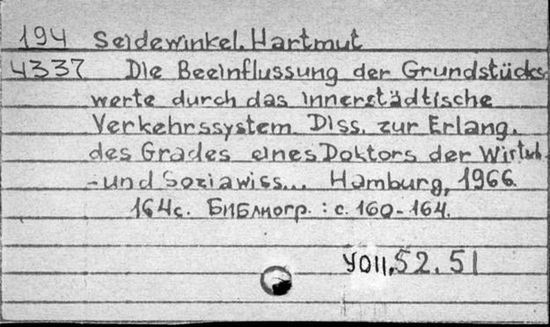 194 Seidewinkel, Hartmut
4337 Die Beeinflussung der Grundstücks-
werte durch das innerstädtische
Verkehrssystem. Diss. zur Erlang.
des Grades eines Doktors der Wirtsch.
-und Soziawiss... Hamburg, 1966.
164с. Библиогр.: с. 160-164.
52.51